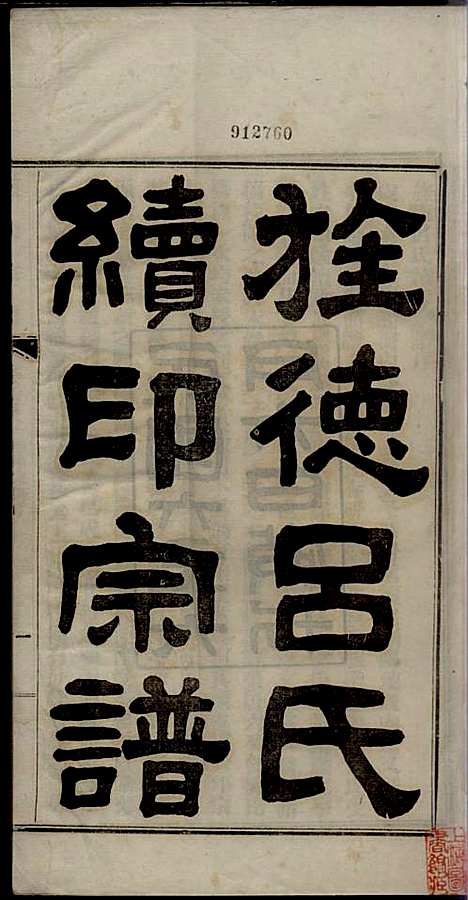 912760
旌德呂氏
續印宗譜